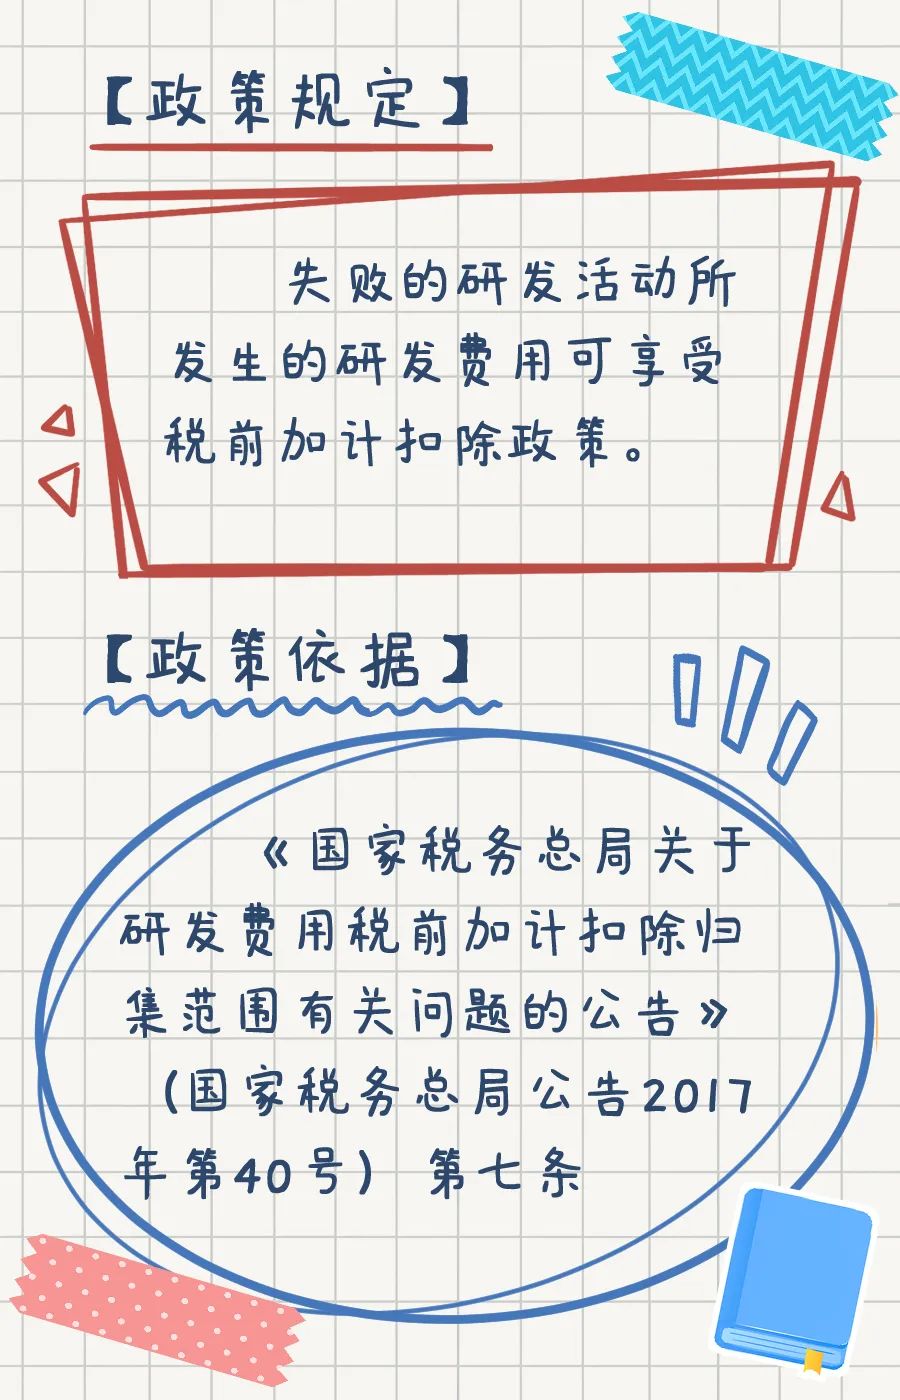 【政策规定】
失败的研发活动所
发生的研发费用可享受
税前加计扣除政策。
【政策依据】
《国家税务总局关于
研发费用税前加计扣除归
集范围有关问题的公告》
(国家税务总局公告2017
年第40号) 第七条